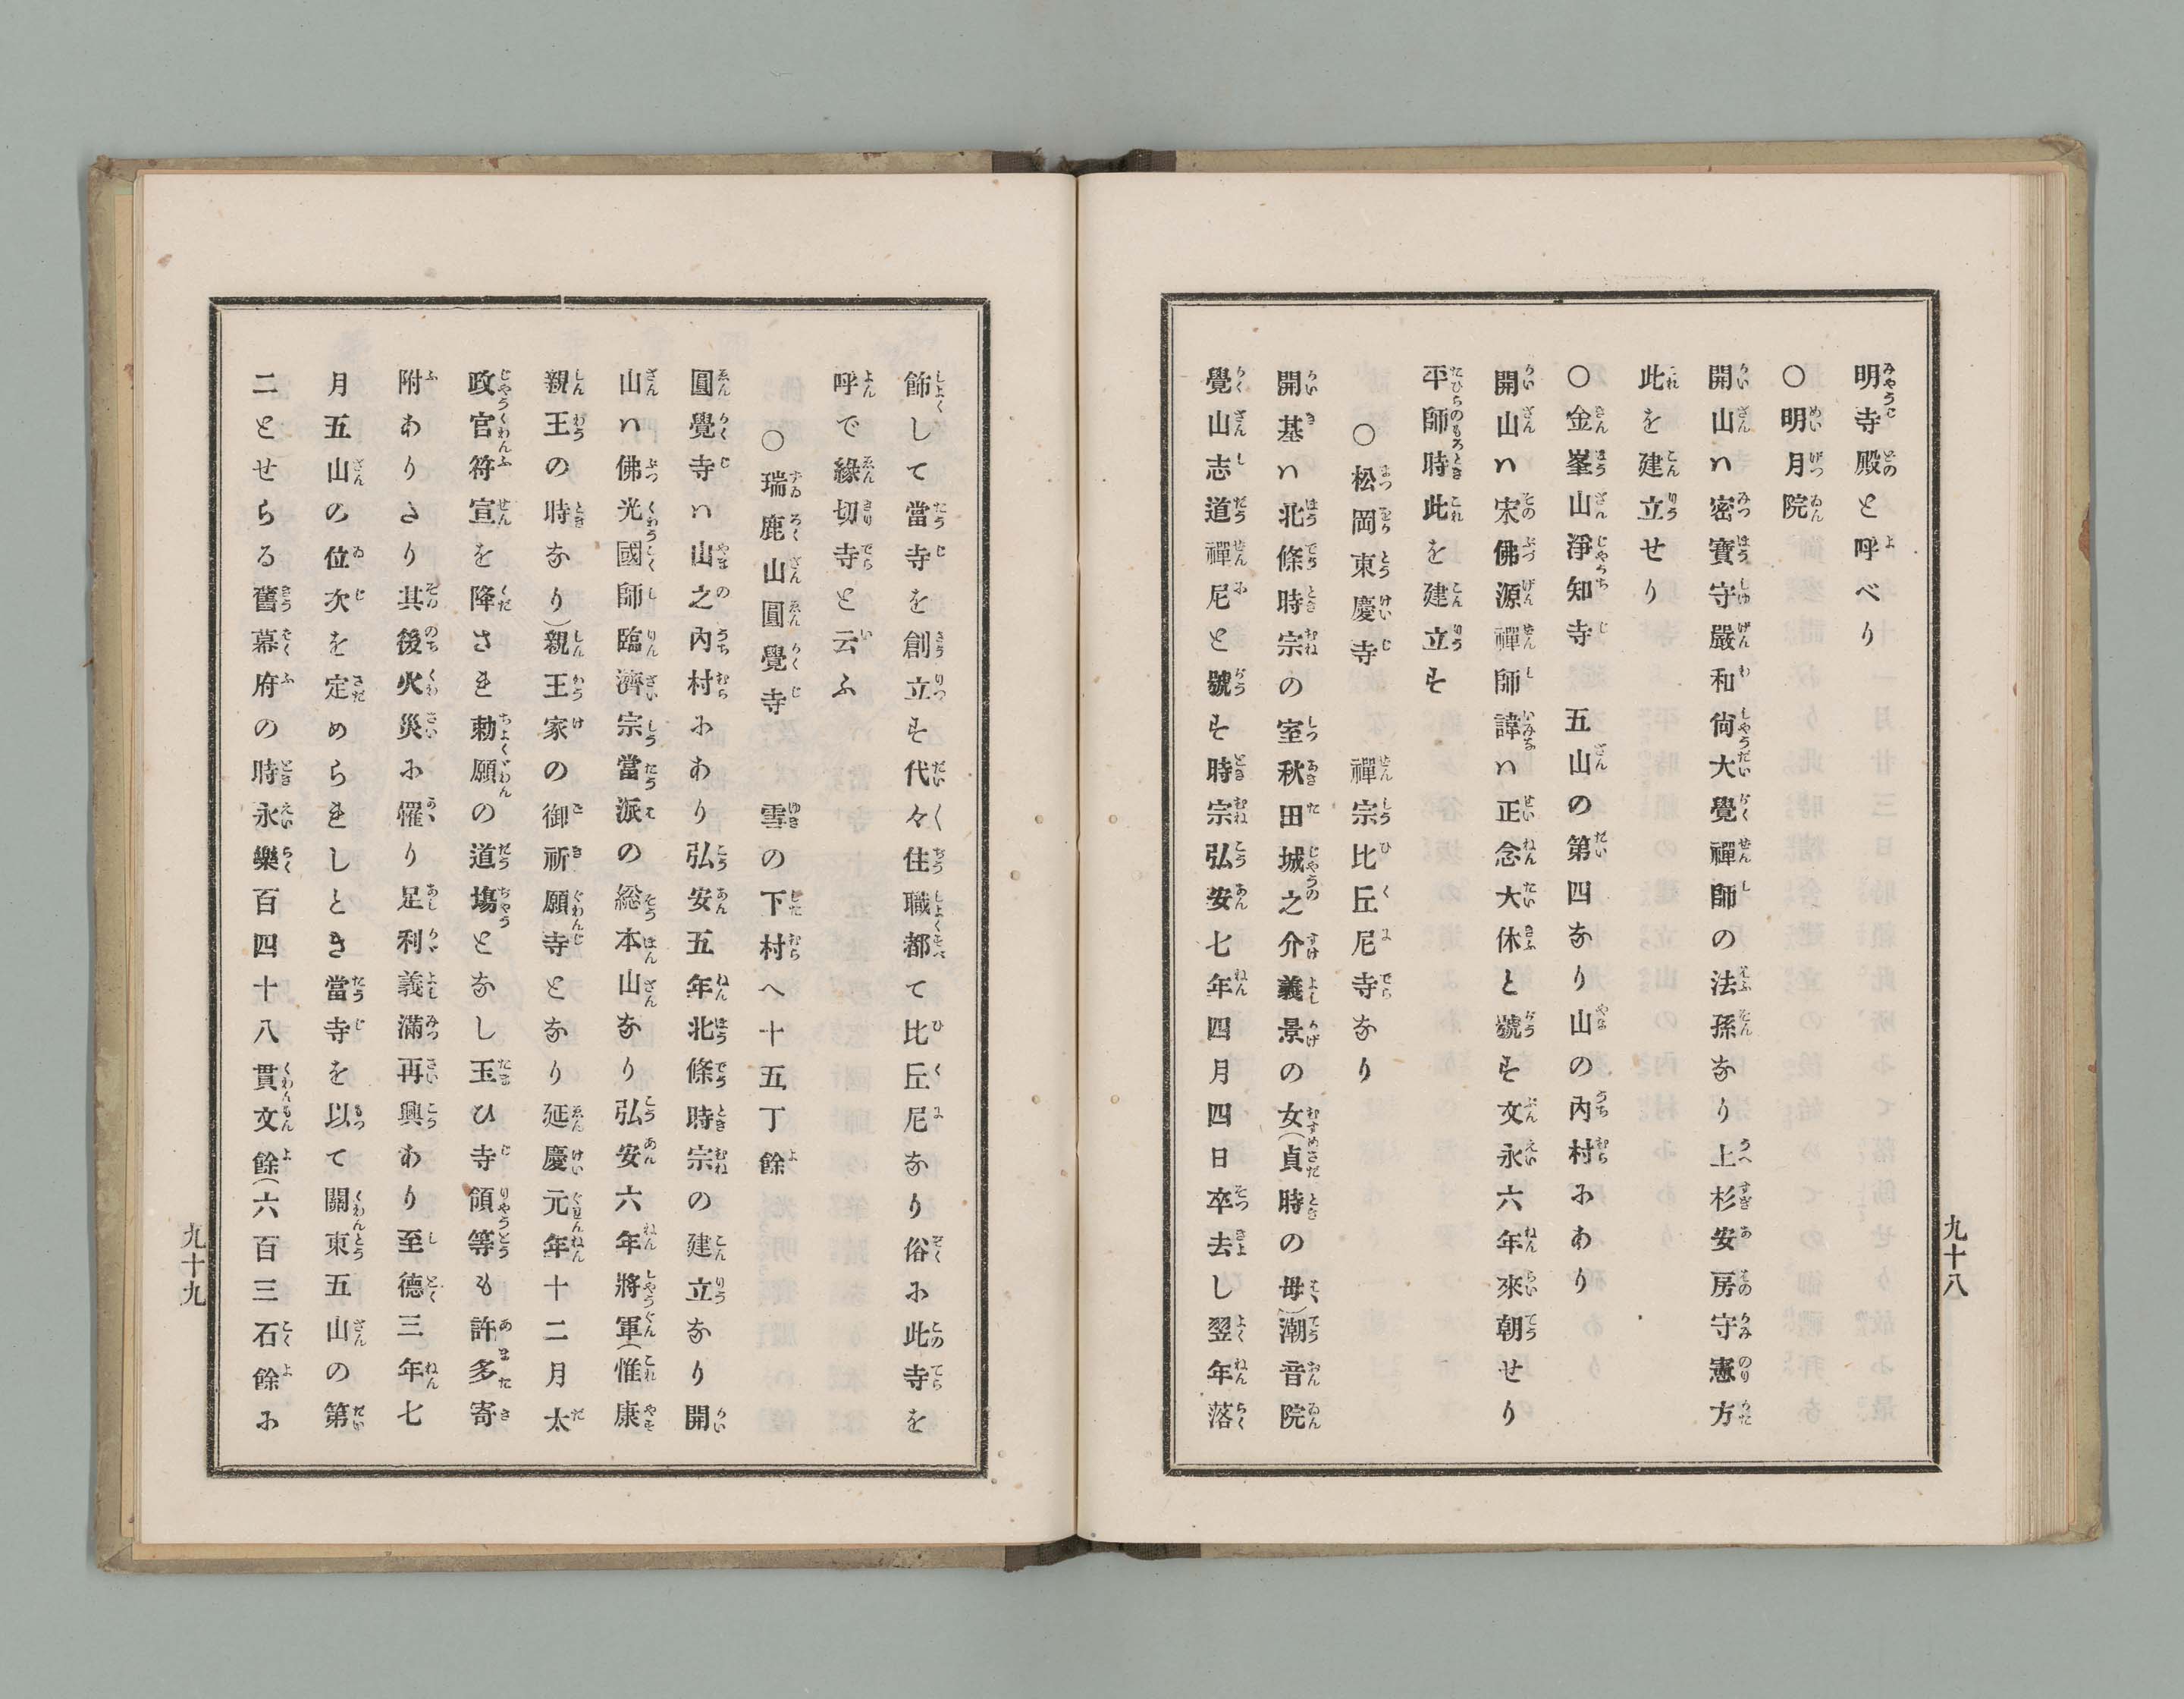 明寺殿と呼べり
〇明月院
開山ハ密寶守嚴和尙大覺禪師の法孫なり上杉安房守憲方
此を建立せり
〇金峯山淨知寺　五山の第四なり山の內村にあり
開山ハ宋佛源禪師諱ハ正念大休と號す文永六年來朝せり
平師時此を建立す
〇松岡東慶寺　禪宗比丘尼寺なり
開基ハ北條時宗の室秋田城之介義景の女(貞時の母)潮音院
覺山志道禪尼と號す時宗弘安七年四月四日卒去し翌年落
九十八
飾して當寺を創立す代々住職都て比丘尼なり俗に此寺を
呼で緣切寺と云ふ
〇瑞鹿山圓覺寺　雪の下村へ十五丁餘
圓覺寺ハ山之內村にあり弘安五年北條時宗の建立なり開
山ハ佛光國師臨濟宗當派の総本山なり弘安六年將軍(惟康
親王の時なり)親王家の御祈願寺となり延慶元年十二月太
政官符宣を降され勅願の道塲となし玉ひ寺領等も許多寄
附ありさり其後火災に罹り足利義滿再興あり至德三年七
月五山の位次を定められしとき當寺を以て關東五山の第
二とせらる舊幕府の時永樂百四十八貫文餘(六百三石餘に
九十九